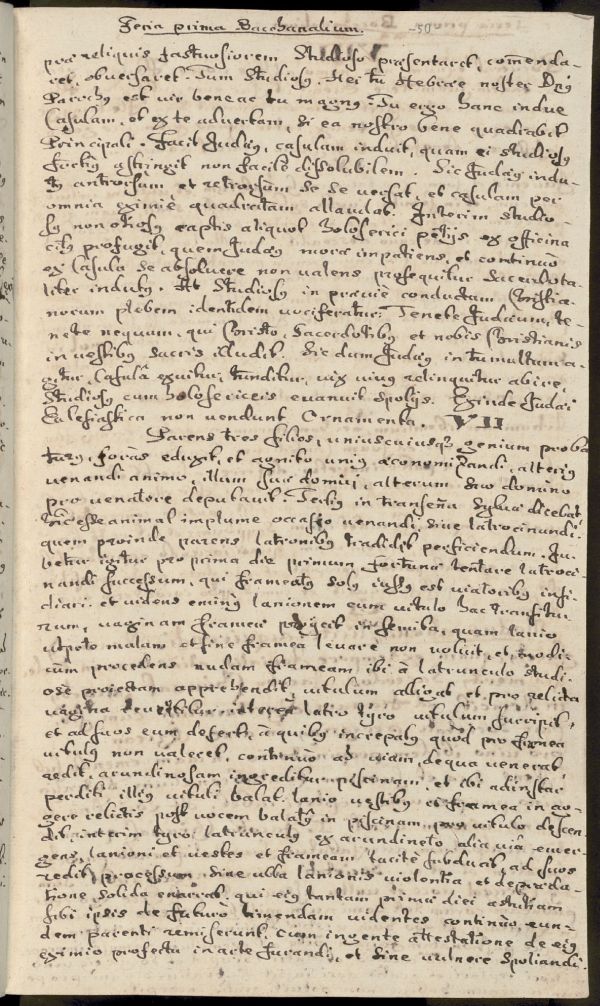 Feria prima Bacchanalium. 50
præ reliquis fastuosiorem Studioso præsentaret, comenda-
ret, obversaret. Tum Studiosus. Hei tu Hebræe noster Dnus
Parochus est vir bene ac tu magnus. Tu ergo hanc indue
Casulam, et ex te advertam, si ea nostro bene quadrabit
Principali. Facit Judæus, casulam induit, quam ei studiosus
fortius astringit non facile dissolubilem. Sic Judæus indu-
tus antrorsum et retrorsum se se versat, et casulam per
omnia eximiè quadratam allaudat. Interim studio-
sus non otiosus captis aliquot holoserici petijs ex officina
citius profugit, quem Judæus moræ impatiens, et continuò
ex Casula se absolvere non valens prosequitur Sacerdota-
liter indutus. At Studiosus in præviè conductam Christia-
norum plebem identidem vociferatur: Tenete Judæum, te-
nete nequam, qui Christo, Sacerdotibus et nobis Christianis
in vestibus sacris illudit. Sic dum Judæus in tumultum a-
gitur, Casulâ exuitur, tunditur, vix vivus relinquitur abire,
Studiosus cum holosericeis evanuit spolijs. Exinde Judæi
Ecclesiastica non vendunt Ornamenta. VII
Parens tres filios, uniuscuiusque genium proba-
turus, foràs eduxit, et agnito unius œconomizandi, alterius
venandi animo, illum suæ domui, alterum suo domino
pro venatore deputavit. Tertius in transenna sylvæ dicebat
hic esse animal implume occasio venandi, sive latrocinandi.
quem proinde parens latronibus tradidit perficiendum. Ju-
betur igitur pro prima die primum fortunæ tentare latroci-
nandi successum, qui frameatus solus iussus est viatoribus insi-
diari. et videns eminus lanionem cum vitulo hac transitu-
rum, vaginam frameæ projicit in semita, quam lanio
utpote malam et sine framea levare non voluit, et modi-
cùm procedens nudam frameam ibi à latrunculo studi-
osè projectam apprehendit, vitulum alligat et pro relicta
vagina revertitur. interea latro tyro vitulum surripit,
et ad suos eum defert, à quibus increpatus quòd pro framea
vitulus non valeret, continuo ad viam, de qua venerat,
redit, arundinosam ingreditur piscinam, et ibi ad instar
perditi illius vituli balat. lanio vestibus et framea in ag-
gere relictis post vocem balatus in piscinam pro vitulo descen-
dit. interim tyro latrunculus ex arundineto alia via emer-
gens, lanioni et vestes et frameam tacitè subducit, ad suos
redit, processum sine ulla lanionis violentia et depræda-
tione solida enarrat. qui eius tantam primæ diei astutiam
sibi ipsis de futuro timendam videntes continuò eun-
dem parenti remiserunt, cum ingente attestatione de eius
eximio profectu in arte furandi, et sine vulnere spoliandi.